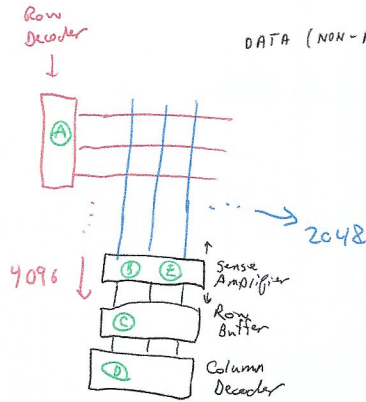 Row
Decoder
DATA (NON-
A
2048
4096
B
E
Sense
Amplifier
C
Row
Buffer
D
Column
Decoder